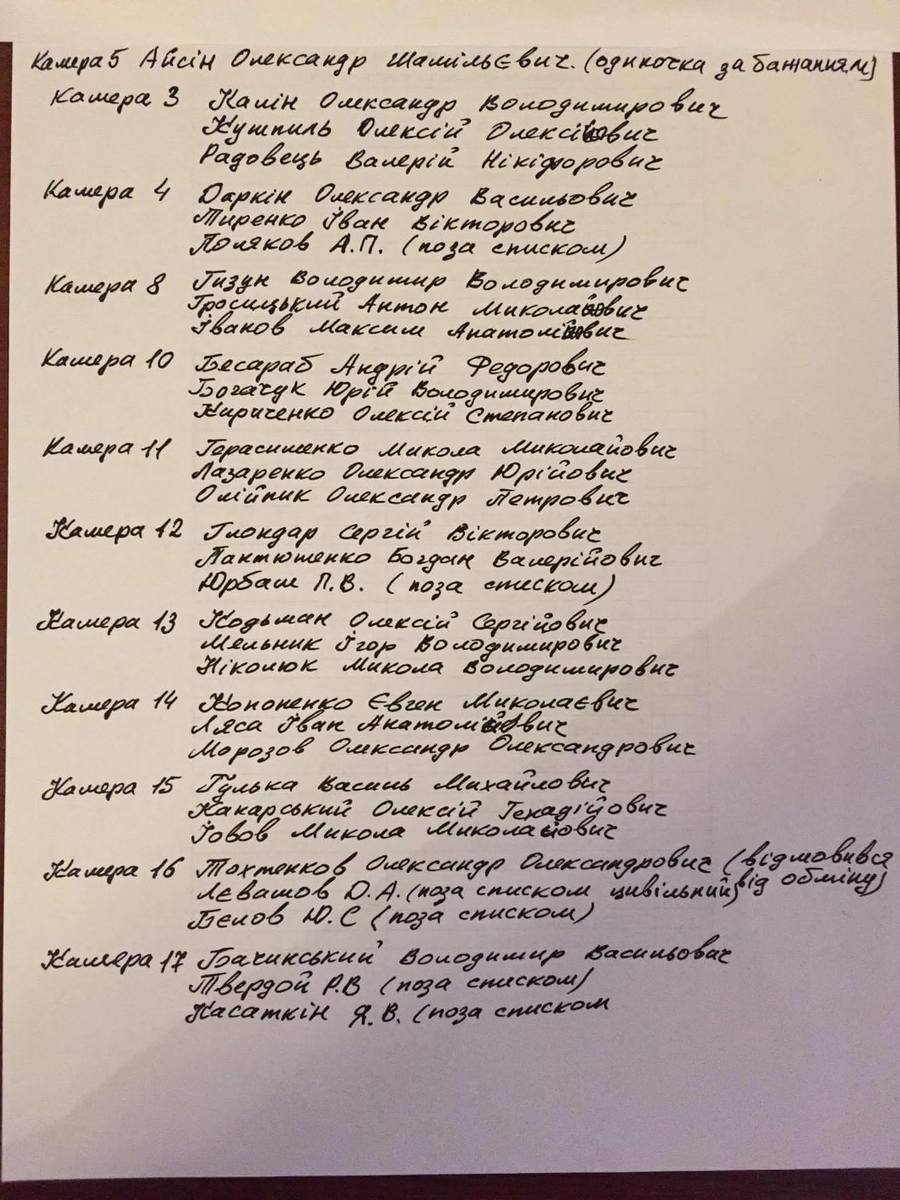 Камера 5 Айсін Олександр Шамільєвич. (одиночка за бажанням)
Камера 3 Калін Олександр Володимирович
Кушпиль Олексій Олексійович
Радовець Валерій Нікіфорович
Камера 4 Даркін Олександр Васильович
Тиренко Іван Вікторович
Поляков А.П. (поза списком)
Камера 8 Гизун Володимир Володимирович
Гросицький Антон Миколайович
Іванов Максим Анатолійович
Камера 10 Бесараб Андрій Федорович
Богачук Юрій Володимирович
Кириченко Олексій Степанович
Камера 11 Герасименко Микола Миколайович
Лазаренко Олександр Юрійович
Олійник Олександр Петрович
Камера 12 Глондар Сергій Вікторович
Пантюшенко Богдан Валерійович
Юрбаш П.В. (поза списком)
Камера 13 Кодьман Олексій Сергійович
Мельник Ігор Володимирович
Ніколюк Микола Володимирович
Камера 14 Кононенко Євген Миколаєвич
Ляса Іван Анатолійович
Морозов Олександр Олександрович
Камера 15 Гулька Василь Михайлович
Какарський Олексій Генадійович
Іовов Микола Миколайович
Камера 16 Тохтенков Олександр Олександрович (відмовився від обміну)
Лєвашов Ю.А. (поза списком цивільний)
Бєлов Ю.С (поза списком)
Камера 17 Бачинський Володимир Васильович
Твердой Р.В (поза списком)
Касаткін Я.В. (поза списком